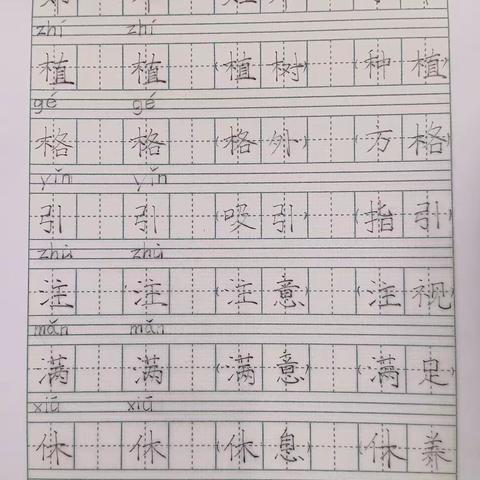 zhí zhí
植 植 (植树) (种植)
gé gé
格 格 (格外) (方格)
yǐn yǐn
引 引 (吸引) (指引)
zhù zhù
注 注 (注意) (注视)
mǎn mǎn
满 满 (满意) (满足)
xiū xiū
休 休 (休息) (休养)